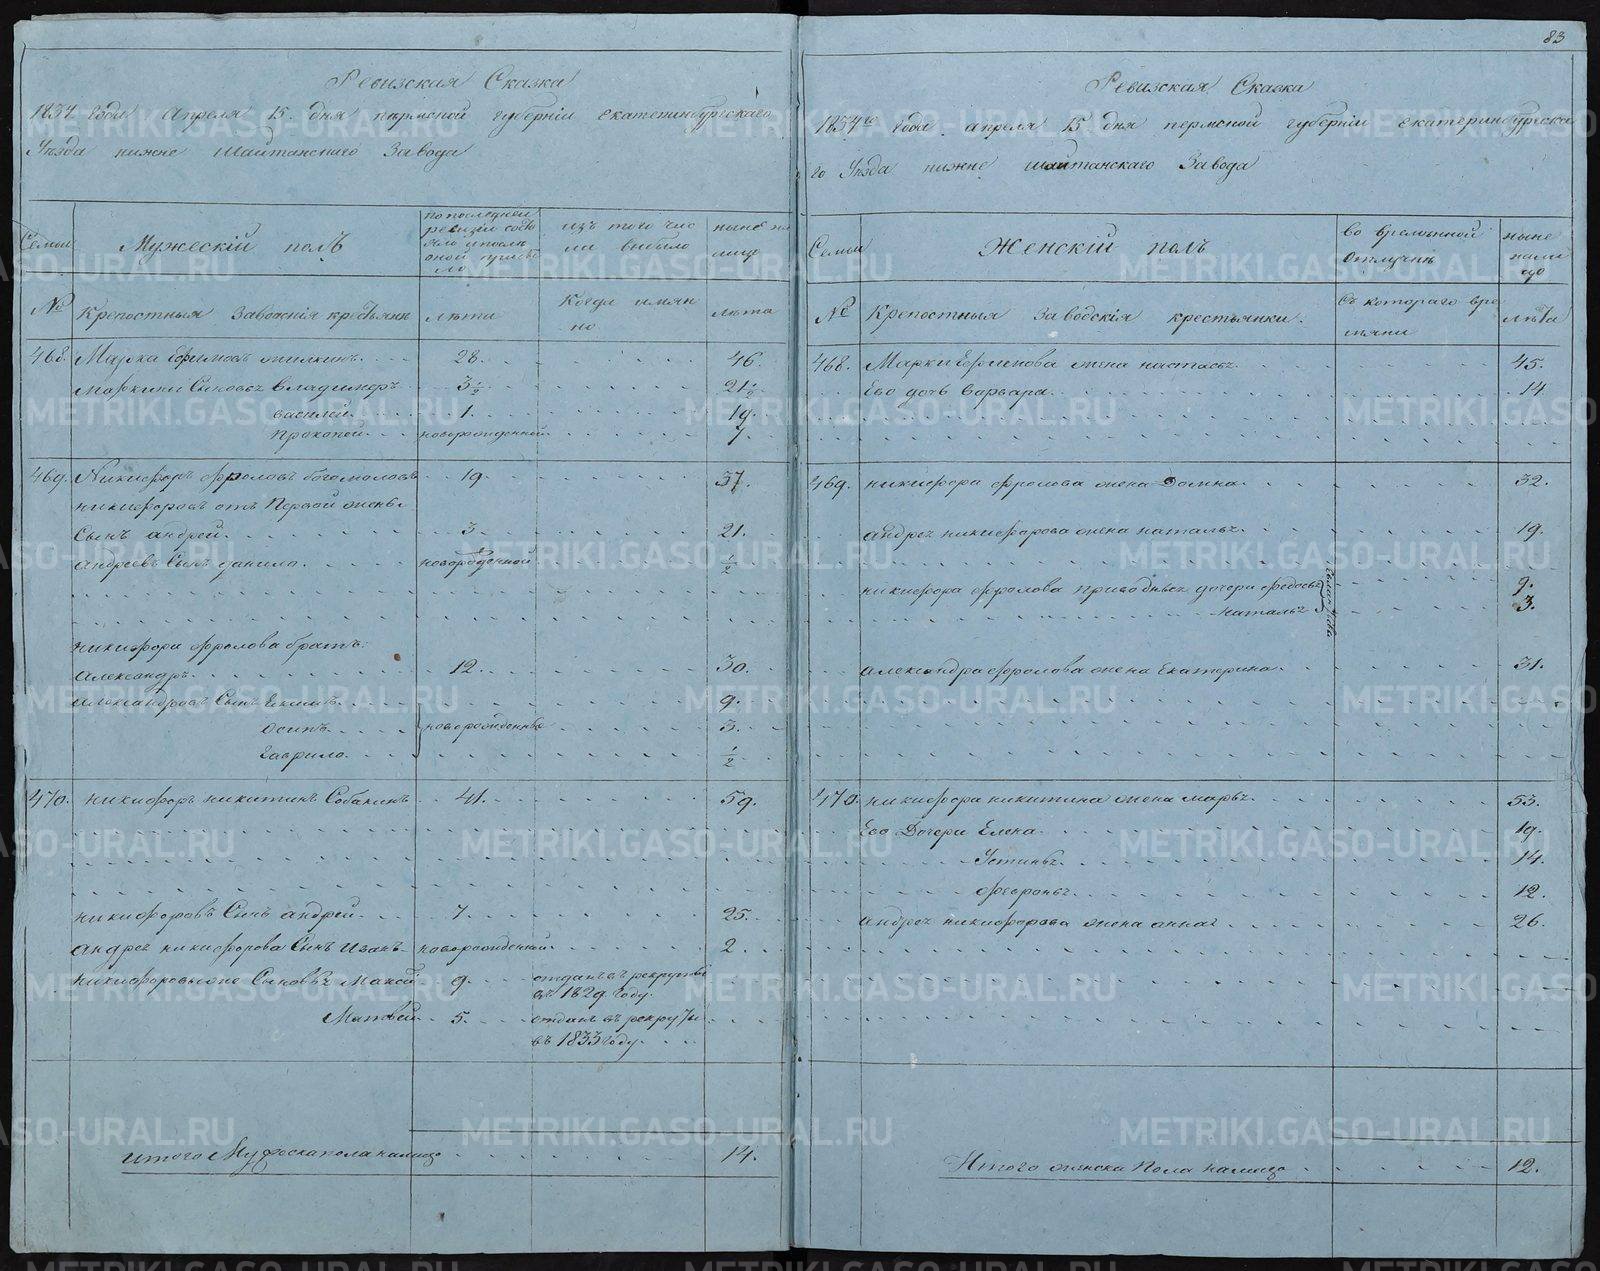 Ревизская Сказка
1834 года Апреля 15. дня пермской губернiи екатеринбургскаго
Уѣзда нижне Шайтанскаго Завода
Семьи
Мужескiй полъ
по последней ревизiи состояло
изъ того числа выбыло
ныне на лицо
№
Крепостныя Заводскiя крестьяне
лѣта
Когда имянно
лѣта
468. Марка Ефимовъ 28. 46.
Маркины Сыновья Владимеръ 3½ 21½
василей. 1. 19.
Прокопей новорожденной 7.
469. Никифоръ Фроловъ богомоловъ 19. 37.
никифоровъ отъ Первой жены
Сынъ андрей. 3. 21.
андреевъ Сынъ данило. новорожденной ½
никифора фролова братъ
александръ. 12. 30.
александровъ Сынъ Екимъ. 9.
осипъ. новорожденныя 3.
гаврило. ½
470. никифоръ никитинъ Собакинъ 41. 59.
никифоровъ Сынъ андрей. 7. 25.
андрея никифорова Сынъ Иванъ новорожденной. 2
никифоровыже Сыновья Макей 9. отданъ в рекруты
въ 1829 году.
Матвей 5. отданъ въ рекруты
въ 1833 году.
итого Мужеска пола налицо 14.
83
Ревизская Сказка
1834го года апреля 15 дня пермской губернiи екатеринбургска
го Уѣзда нижне шайтанскаго Завода
Семьи
Женскiй полъ
во временной отлучкѣ
ныне налицо
№
Крепостныя Заводскiя крестьянки.
Съ котораго времяни
лѣта
468. Марки Ефимова жена настасья. 45.
Ево дочь варвара. 14
469. никифора фролова жена Домна. 32.
андрея никифорова жена наталья. 19.
никифора фролова приводныя дочери федосья 9.
наталья 3.
александра фролова жена Екатерина. 31.
470. никифора никитина жена марья. 53.
Ево Дочери Елена. 19.
Устинья. 14.
феврония. 12.
андрея никифорова жена анна 26.
Итого женска Пола налицо 12.
METRIKI.GASO-URAL.RU